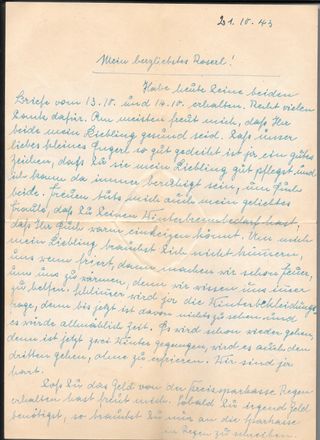 21.10.43
Mein herzliebstes Roserl!
Habe heute Deine beiden
Briefe vom 13.10. und 14.10. erhalten. Recht vielen
Dank dafür. Am meisten freut mich, daß Ihr
beide mein Liebling gesund seid. Daß unser
liebes kleines Engerl so gut gedeiht ist ja ein gutes
Zeichen, daß Du sie mein Liebling gut pflegst, und
ich kann da immer beruhigt sein, um Euch
beide. Freuen tuts mich auch mein geliebtes
Fraule, daß Du Deinen Winterbrennbedarf hast,
daß Ihr Euch warm einheizen könnt. Um mich
mein Liebling, brauchst Dich nicht kümmern,
uns wenn friert, dann machen wir schon Feuer,
um uns zu wärmen, denn wir wissen uns immer
zu helfen. Schlimmer wird ja die Winterbekleidungs-
frage, denn bis jetzt ist davon nichts zu sehen und
es würde allmählich Zeit. Es wird schon wieder gehen,
denn ist jetzt zwei Winter gegangen, wird es auch den
dritten gehen, ohne zu erfrieren. Wir sind ja
hart.
Daß Du das Geld von der Kreissparkasse Regen
erhalten hast freut mich. Sobald Du irgend Geld
benötigst, so brauchst Du mir an die Sparkasse
in Regen zu schreiben.